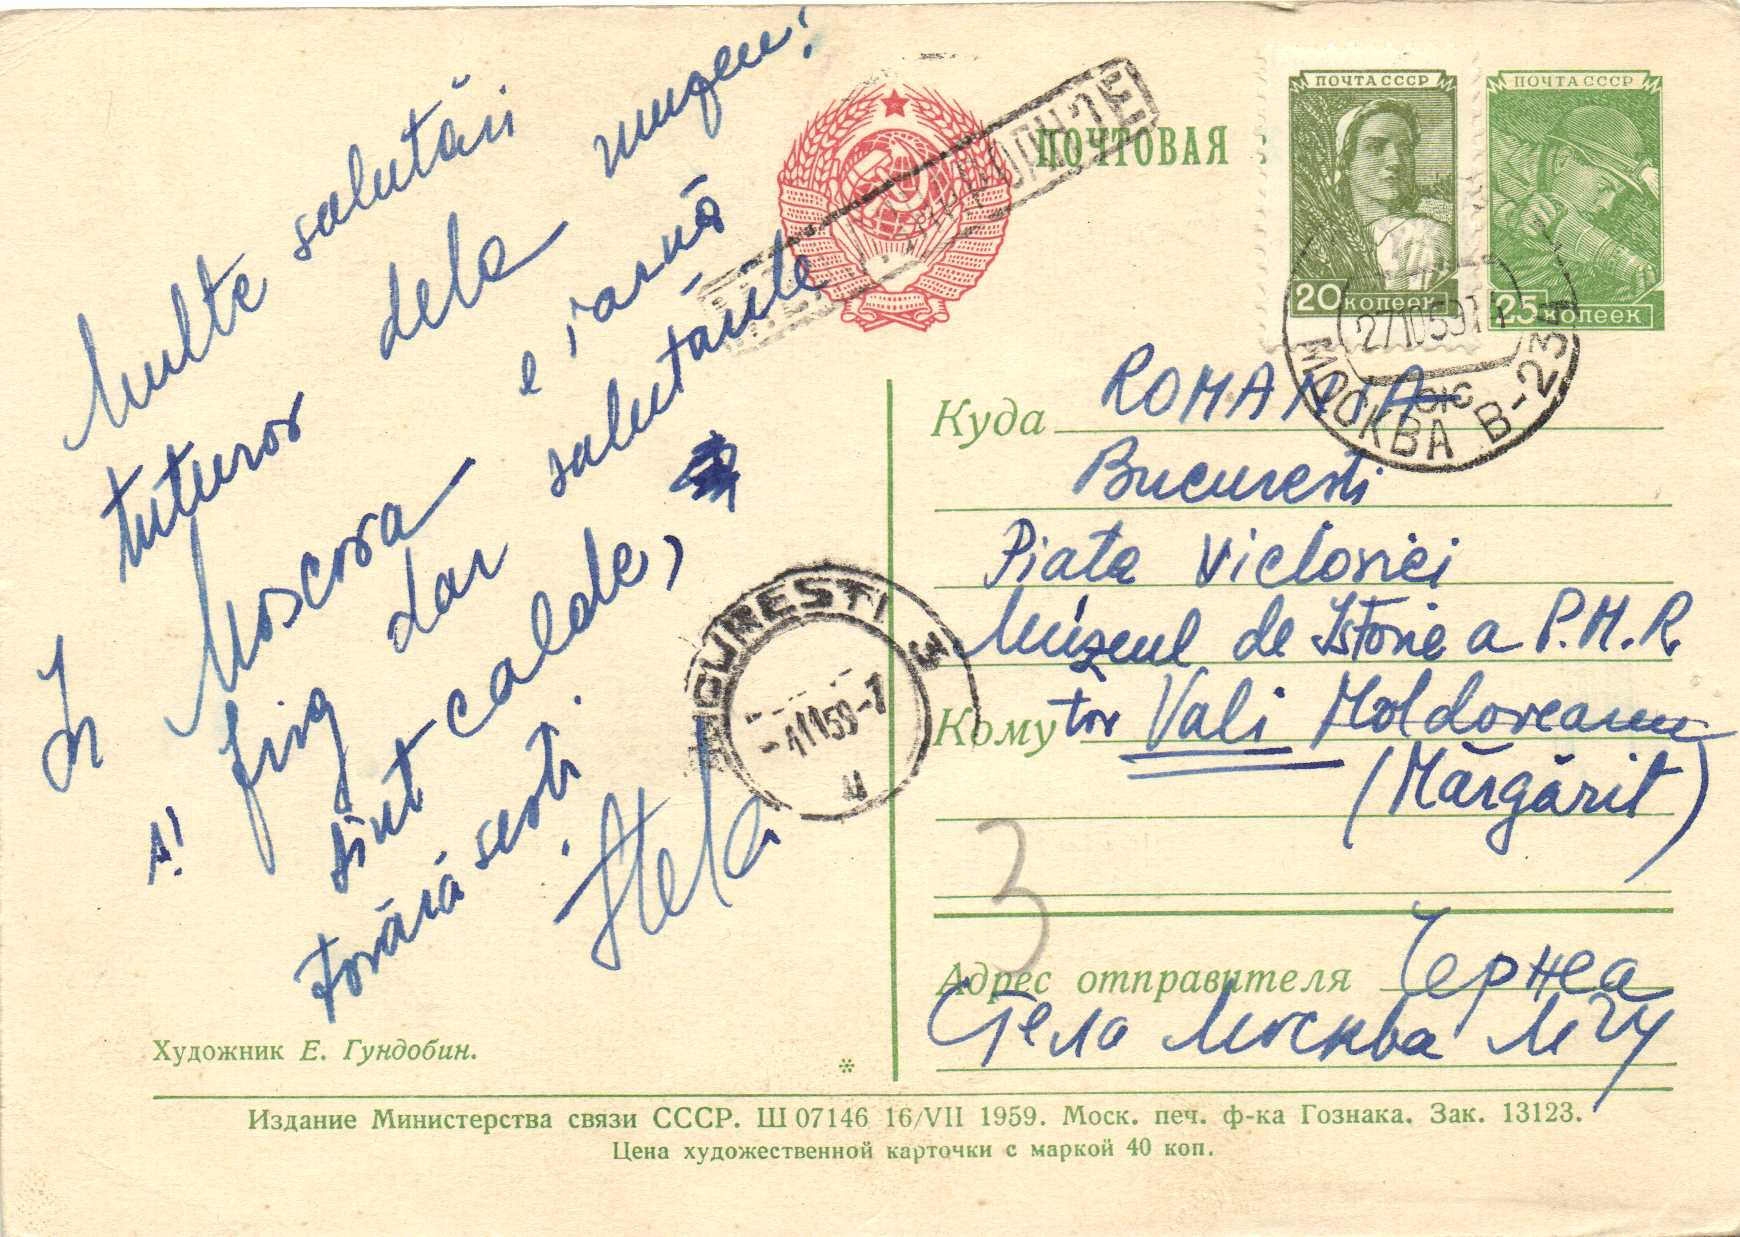 Multe salutări
tuturor dela muzeu!
În Moscova e iarnă
și frig dar salutările
sînt calde,
tovărășești.
Stela
ПОЧТОВАЯ
ПОЧТА СССР
20 КОПЕЕК
ПОЧТА СССР
25 КОПЕЕК
27 10 59
МОСКВА В-234
Куда ROMANIA
Bucuresti
Piata Victoriei
Muzeul de Istorie a P.M.R.
Кому tov Vali Moldoveanu
(Mărgărit)
BUCURESTI 3
-1 11 59-7
3
Адрес отправителя Черня
Стела Москва МГУ
Художник Е. Гундобин.
*
Издание Министерства связи СССР. Ш 07146 16/VII 1959. Моск. печ. ф-ка Гознака. Зак. 13123.
Цена художественной карточки с маркой 40 коп.